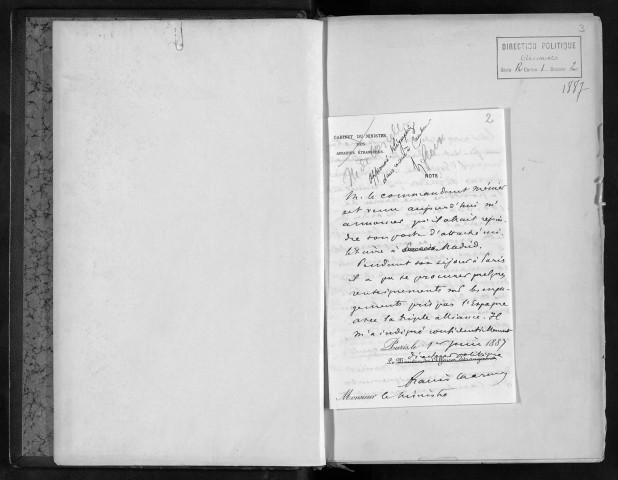 3
DIRECTION POLITIQUE
Série R Carton 1 Dossier 2
1887
2
CABINET DU MINISTRE
DES
AFFAIRES ÉTRANGÈRES
NOTE
M. le commandant
est venu aujourd'hui m'
annoncer qu'il allait rejoin-
dre son poste d'attaché mi-
litaire à Madrid.
Pendant son séjour à Paris
il a pu se procurer quelques
renseignements sur les enga-
gements pris par l'Espagne
avec la triple alliance. Il
m'a indiqué confidentiellement
Paris, le 1er Juin 1887
Francis Charmes
Monsieur le Ministre